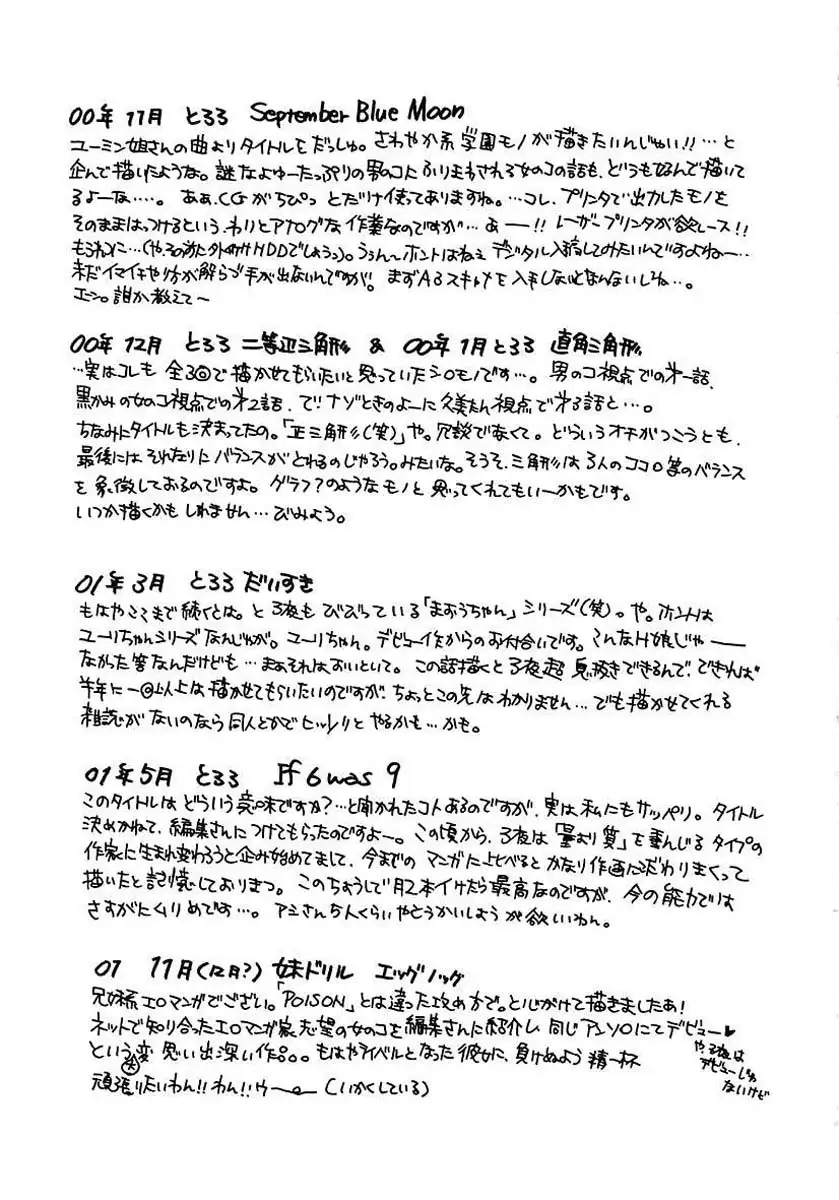 00年11月 とろろ September Blue Moon
ユーミン姐さんの曲よりタイトルをだっしゅ。さわやか系学園モノが描きたいんじゃい!!…と
企んで描いたような。謎なよゆーたっぷりの男のコにふりまわされる女のコの話も、どうもなんで描いて
るよーな…。ああ、CGがちびっとだけ使ってありますね。…コレ、プリンタで出力したモノを
そのままはっつけるという、わりとアナログな作業なのですが…あー!!レーザープリンタが欲しース!!
もうれつに…(や、その前に外付けHDDでしょうっ)。うぅん〜ホントはねぇデジタル入稿してみたいんですよねー…
未だイマイチやり方が解らず手が出ないんですが。まずA3スキャナを入手しないとなんないしね…。
エーン。誰か教えて〜
00年12月 とろろ 二等辺三角形 & 00年1月とろろ 直角三角形
…実はコレも全3回で描かせてもらいたいと思っていたシロモノです…。男のコ視点での第一話、
黒かみの女のコ視点での第2話、で!!ナゾときのよーに久美たん視点で第3話と…。
ちなみにタイトルも決まってたの。「正三角形(笑)」や。冗談でなくて。どういうオチがつこうとも、
最後にはそれなりにバランスがとれるのじゃろう。みたいな。そうそ、三角形は3人のココロ等のバランス
を象徴しておるのですよ。グラフ?のようなモノと思ってくれてもいーかもです。
いつか描くかもしれません…びみょう。
01年3月 とろろ だいすき
もはやここまで続くとは。と子夜もびびっている「まおうちゃん」シリーズ(笑)。や。ホントは
ユーリちゃんシリーズなんじゃが。ユーリちゃん。デビュー作からのお付合いです。こんなH娘じゃ——
なかった筈なんだけども…まぁそれはおいといて。この話描くと子夜超息抜きできるんで、できれば
半年に一回以上は描かせてもらいたいのですが、ちょっとこの先はわかりません…でも描かせてくれる
雑誌がないのなら同人とかでヒッソリとやるかも…かも。
01年5月 とろろ If 6 was 9
このタイトルはどういう意味ですか?…と聞かれたコトあるのですが、実は私にもサッパリ。タイトル
決めかねて、編集さんにつけてもらったのですよー。この頃から、子夜は「量より質」を重んじるタイプの
作家に生まれ変わろうと企み始めてまして、今までのマンガに比べるとかなり作画にこだわりまくって
描いたと記憶しておりまつ。このちょうしで月2本イけたら最高なのですが、今の能力では
さすがにムリめです…。アシさん5人くらいやとうかいしょうが欲しいわん。
01 11月(12月?) 妹ドリル エッグノッグ
兄妹系エロマンガでございい。「POISON」とは違った攻め方で。と心がけて描きましたあ!
ネットで知り合ったエロマンガ家志望の女のコを編集さんに紹介し同じアンソにてデビュー♥
という変(笑)思い出深い作品。もはやライバルとなった彼女に、負けぬよう精一杯
頑張りたいわん!!わん!!ウ〜。(いかくしている)
や、子夜は
デビューじゃ
ないけど